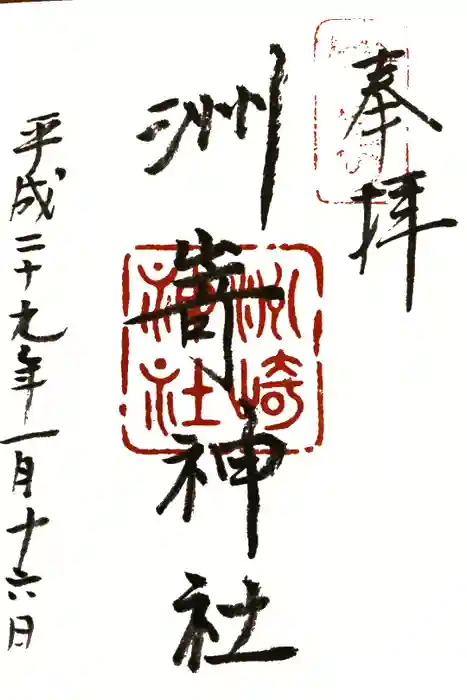 奉拝
洲嵜神社
洲崎
神社
平成二十九年一月十六日